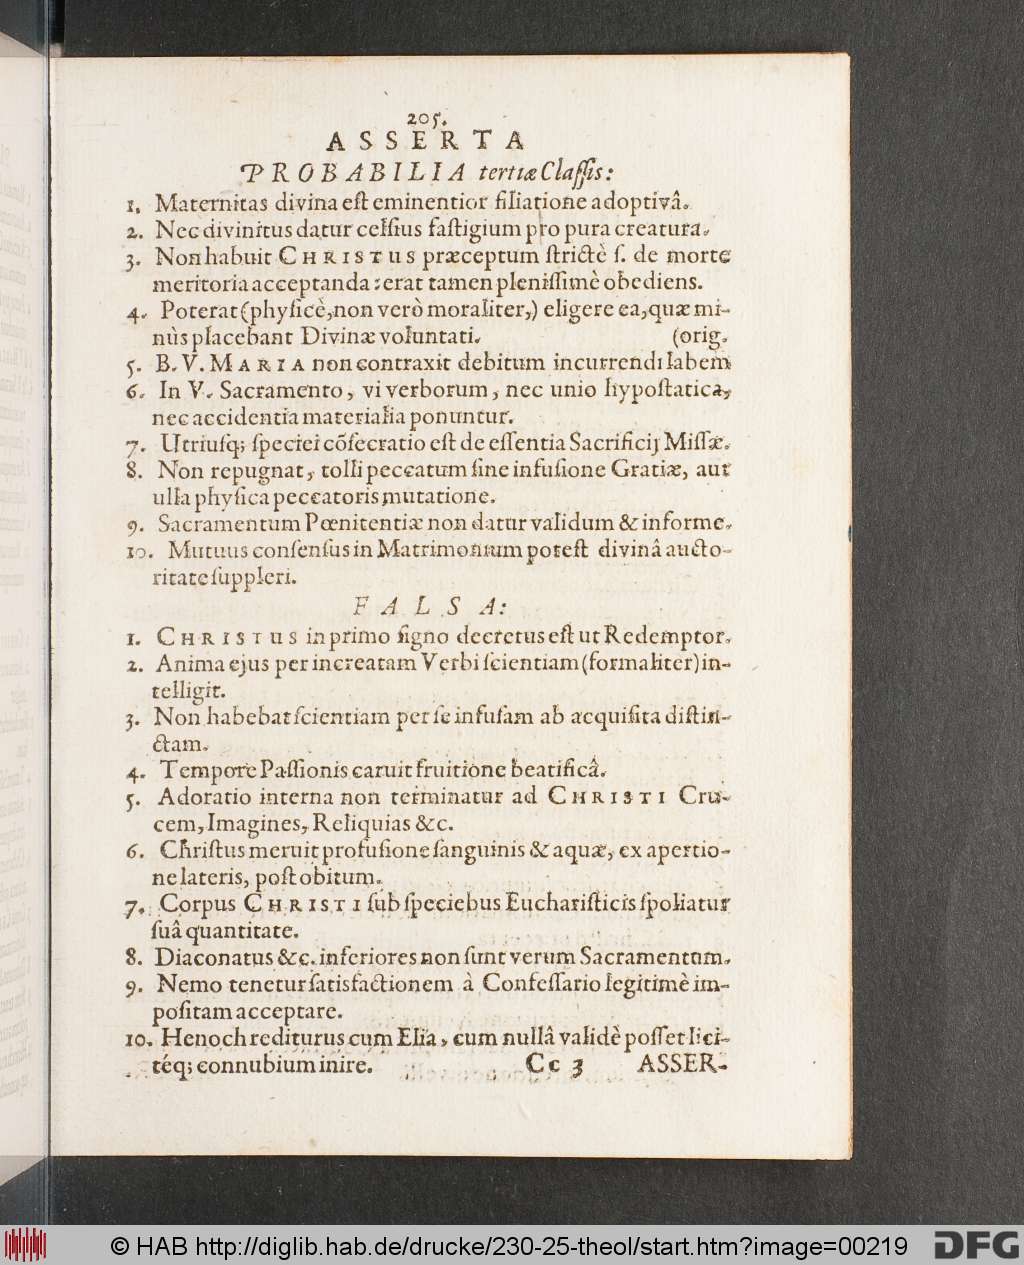 205.
ASSERTA
PROBABILIA tertiæ Claſſis:
1. Maternitas divina eſt eminentior filiatione adoptivâ.
2. Nec divinitus datur celſius faſtigium pro pura creatura.
3. Non habuit CHRISTUS præceptum ſtrictè ſ. de morte
meritoria acceptanda: erat tamen pleniſſimè obediens.
4. Poterat (phyſicè, non verò moraliter,) eligere ea, quæ mi-
nùs placebant Divinæ voluntati. (orig.
5. B. V. MARIA non contraxit debitum incurrendi labem
6. In V. Sacramento, vi verborum, nec unio hypoſtatica,
nec accidentia materialia ponuntur.
7. Utriuſq; ſpeciei cõſecratio eſt de eſſentia Sacrificij Miſſæ.
8. Non repugnat, tolli peccatum ſine infuſione Gratiæ, aut
ulla phyſica peccatoris mutatione.
9. Sacramentum Pœnitentiæ non datur validum & informe.
10. Mutuus conſenſus in Matrimonium poteſt divinâ aucto-
ritate ſuppleri.
FALSA:
1. CHRISTUS in primo ſigno decretus eſt ut Redemptor.
2. Anima ejus per increatam Verbi ſcientiam (formaliter) in-
telligit.
3. Non habebat ſcientiam per ſe infuſam ab acquiſita diſtin-
ctam.
4. Tempore Paſſionis caruit fruitione beatificâ.
5. Adoratio interna non terminatur ad CHRISTI Cru-
cem, Imagines, Reliquias &c.
6. Chriſtus meruit profuſione ſanguinis & aquæ, ex apertio-
ne lateris, poſt obitum.
7. Corpus CHRISTI ſub ſpeciebus Euchariſticis ſpoliatur
ſuâ quantitate.
8. Diaconatus &c. inferiores non ſunt verum Sacramentum.
9. Nemo tenetur ſatisfactionem à Confeſſario legitimè im-
poſitam acceptare.
10. Henoch rediturus cum Elia, cum nullâ validè poſſet lici-
téq; connubium inire. Cc 3 ASSER-
© HAB http://diglib.hab.de/drucke/230-25-theol/start.htm?image=00219 DFG